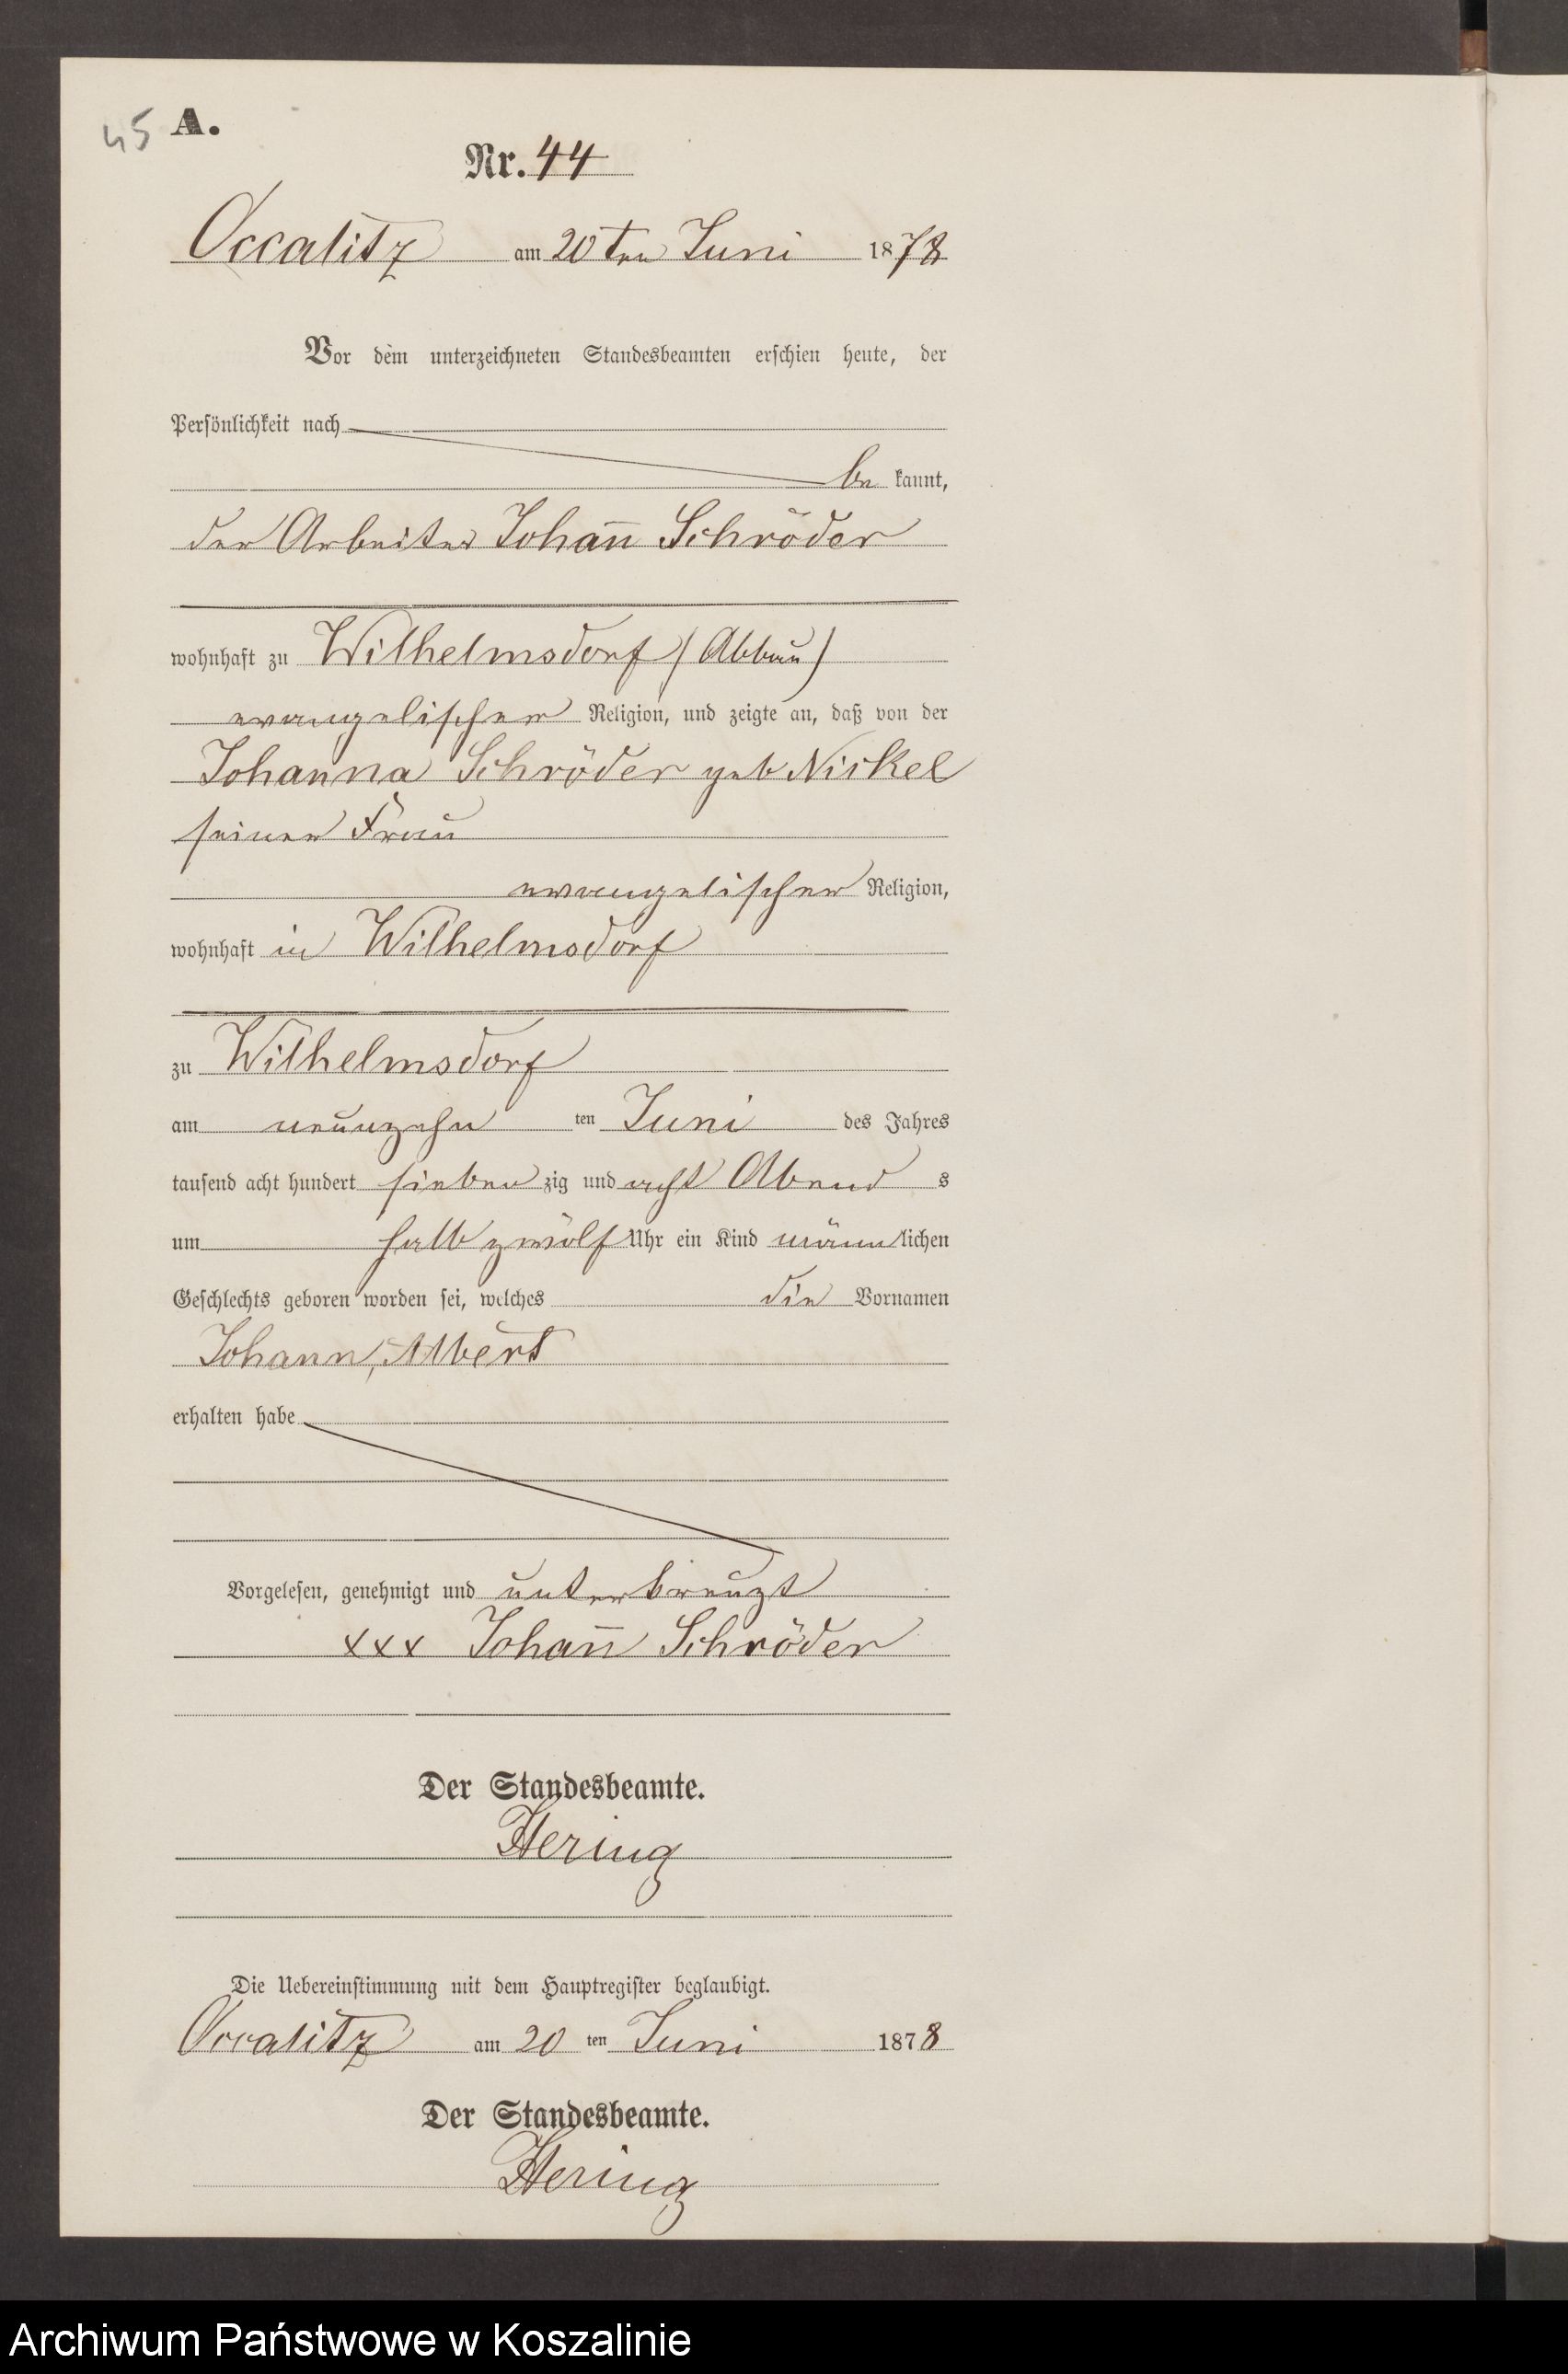 45 A.
Nr. 44
Occalitz am 20ten Juni 1878
Vor dem unterzeichneten Standesbeamten erschien heute, der
Persönlichkeit nach
be kannt,
der Arbeiter Johañ Schröder
wohnhaft zu Wilhelmsdorf (Abbau)
evangelischer Religion, und zeigte an, daß von der
Johanna Schröder geb Nickel
seiner Frau
evangelischer Religion,
wohnhaft in Wilhelmsdorf
zu Wilhelmsdorf
am neunzehn ten Juni des Jahres
tausend acht hundert sieben zig und acht Abend s
um halb zwölf Uhr ein Kind männlichen
Geschlechts geboren worden sei, welches die Vornamen
Johann, Albert
erhalten habe
Vorgelesen, genehmigt und unterkreuzt
xxx Johañ Schröder
Der Standesbeamte.
Hering
Die Uebereinstimmung mit dem Hauptregister beglaubigt.
Occalitz am 20 ten Juni 1878
Der Standesbeamte.
Hering
Archiwum Państwowe w Koszalinie